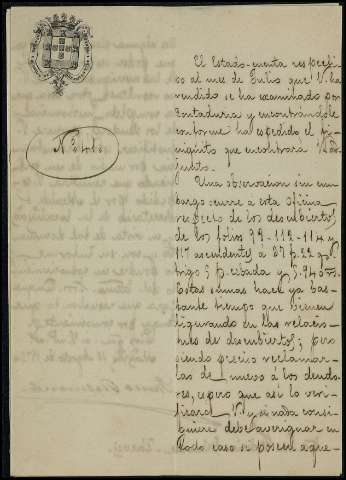 Nº 418
El Estado-cuenta respecti-
vo al mes de Julio que V. ha
rendido se ha examinado por
Contaduria y encontrandole
conforme ha expedido el fi-
niquito que encontrará V. ad-
junto.
Una observacion sin em-
bargo ocurre a esta oficina
respecto de los descubiertos
de los fólios 99-112-114 y
117 ascendentes á 87 p. 22
trigo cebada y
Estas sumas hace ya bas-
tante tiempo que vienen
figurando en las relacio-
nes de descubiertos; pero
siendo preciso reclamar-
las de nuevo á los deudo-
res, espero que asi lo veri-
ficará V. y si nada consi-
guiere debe averiguar en
todo caso si poseen aque-